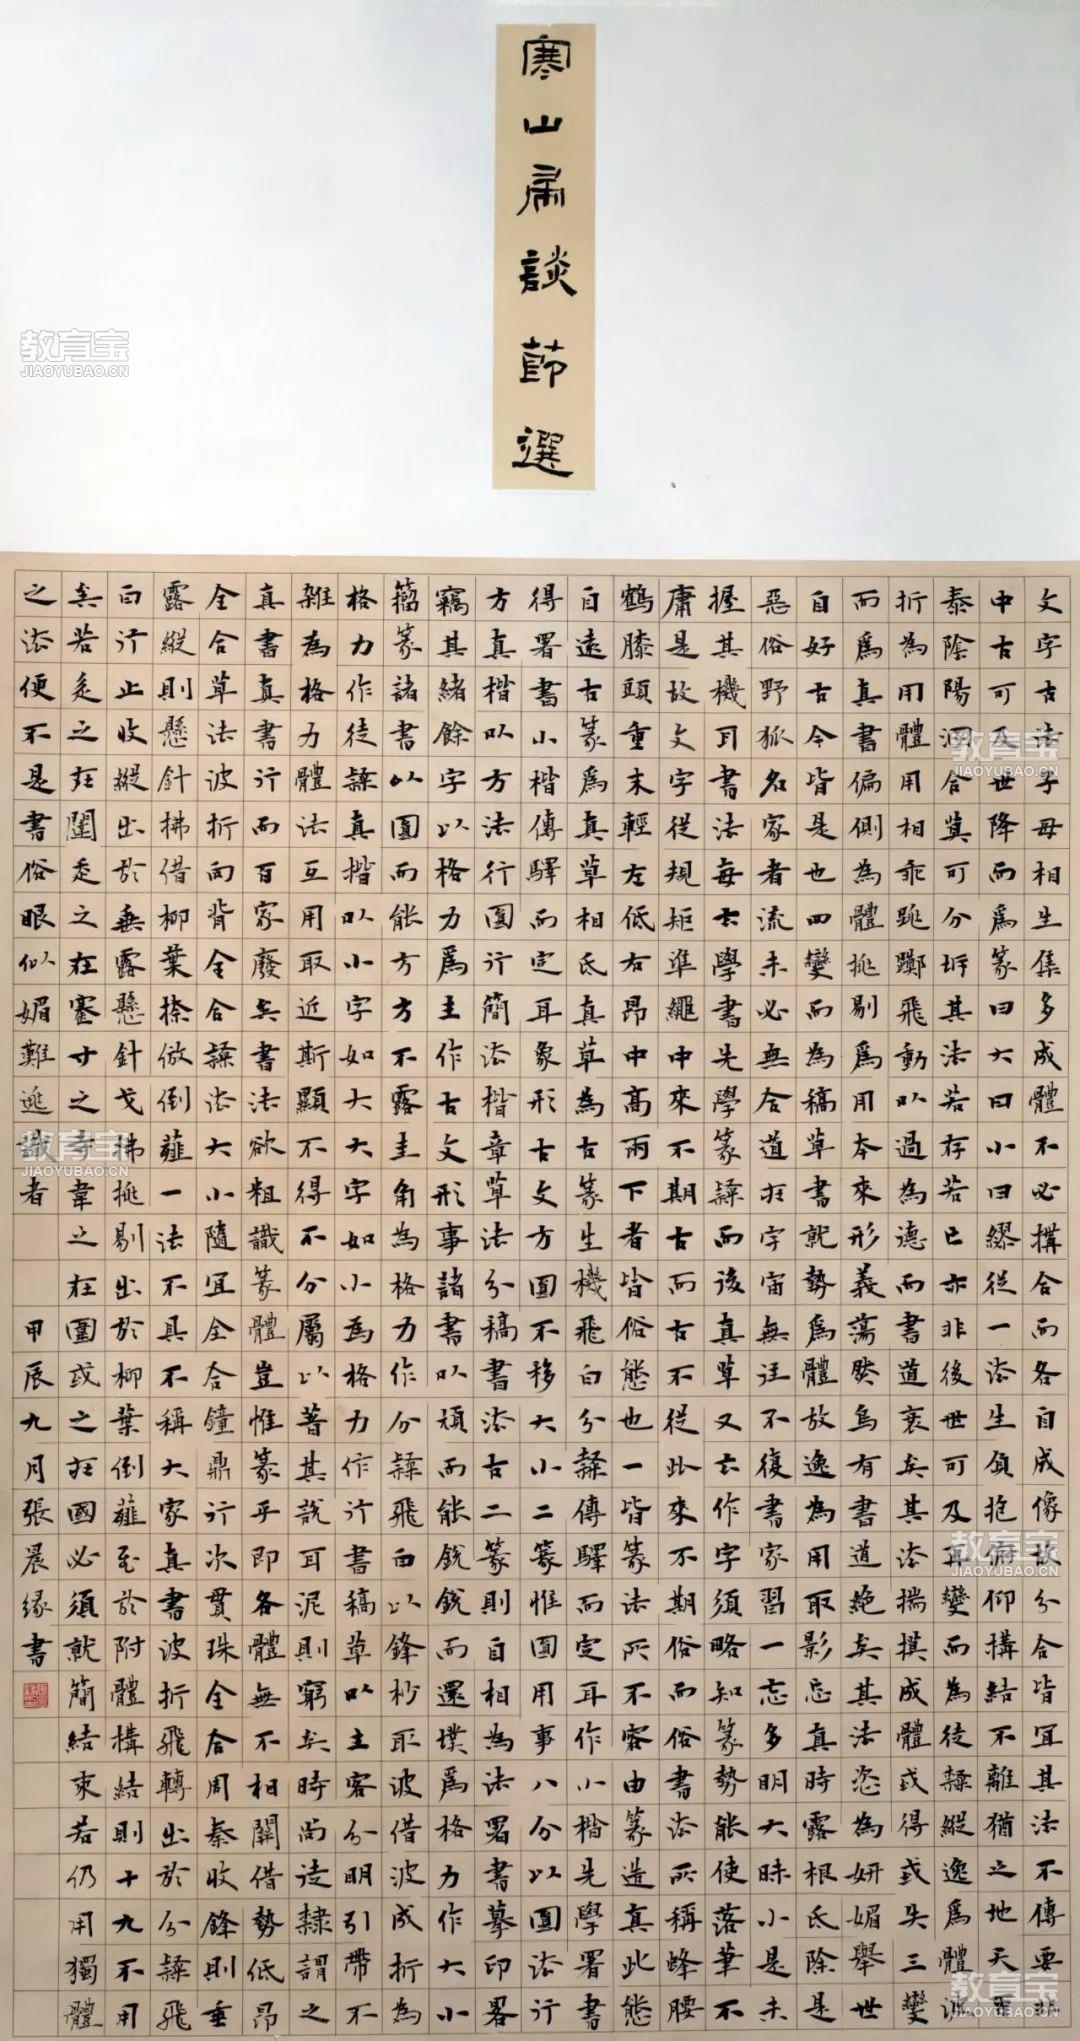 寒山帚談節選
文字古法子母相生集多成體不必搆合而各自成像故分合皆宜其法不傳要非
中古可及世降而爲篆曰大曰小曰繆從一法生負抱俯仰搆結不離猶之地天
泰陰陽涵合冀可分拆其法若存若亡亦非後世可及再變而為徒隸縱逸爲體波
折為用體用相乖跳躑飛動以過為德而書道衰矣其法揣摸成體或得或失三變
而爲真書偏側為體挑剔爲用本來形義蕩然烏有書道絕矣其法恣為妍媚舉世
自好古今皆是也四變而為稿草書就勢爲體放逸為用取影忘真時露根氐除是
惡俗野狐名家者流未必無合道在字宙無注不復書家習一忘多明大昧小是未
握其機耳書法每云學書先學篆隸而後真草又云作字須略知篆勢能使落筆不
庸是故文字從規矩準繩中來不期古而古不從此來不期俗而俗書法所稱蜂腰
鶴膝頭重末輕左低右昂中高兩下者皆俗態也一皆篆法所不容由篆造真此態
自遠古篆爲真草相氐真草為古篆生機飛白分隸傳驛而定耳作小楷先學署書
得署書小楷傳驛而定耳象形古文方圓不移大小二篆惟圓用事八分以圓法行
方真楷以方法行圓行簡法楷章草法分稿書法古二篆則自相為法署書摹印畧
竊其緒餘字以格力爲主作古文形事諸書以頑而能銳銳而還璞爲格力作大小
籀篆諸書以圓而能方方不露圭角為格力作分隸飛白以鋒杪取波借波成折為
格力作徒隸真楷以小字如大大字如小為格力作行書稿草以主客分明引帶不
雜為格力體法互用取近斯顯不得不分屬以著其說耳泥則窮矣時尚徒隸謂之
真書真書行而百家廢矣書法欲粗識篆體豈惟篆乎即各體無不相關借勢低昂
全合草法波折向背全合隸法大小隨宜全合鐘鼎行次貫珠全合周秦收鋒則垂
露縱則懸針拂借柳葉捺倣倒薤一法不具不稱大家真書波折飛轉出於分隸飛
白行止收縱出於垂露懸針戈拂挑剔出於柳葉倒薤至於附體搆結則十九不用
矣若辵之在闥辵之在蹇寸之寺韋之在圍或之在國必須就簡結束若仍用獨體
之法便不是書俗眼似媚難逃識者 甲辰九月張晨緣書
教育宝
JIAOYUBAO.CN
教育宝
JIAOYUBAO.CN
教育宝
JIAOYUBAO.CN
教育宝
JIAOYUBAO.CN
教育宝
JIAOYUBAO.CN